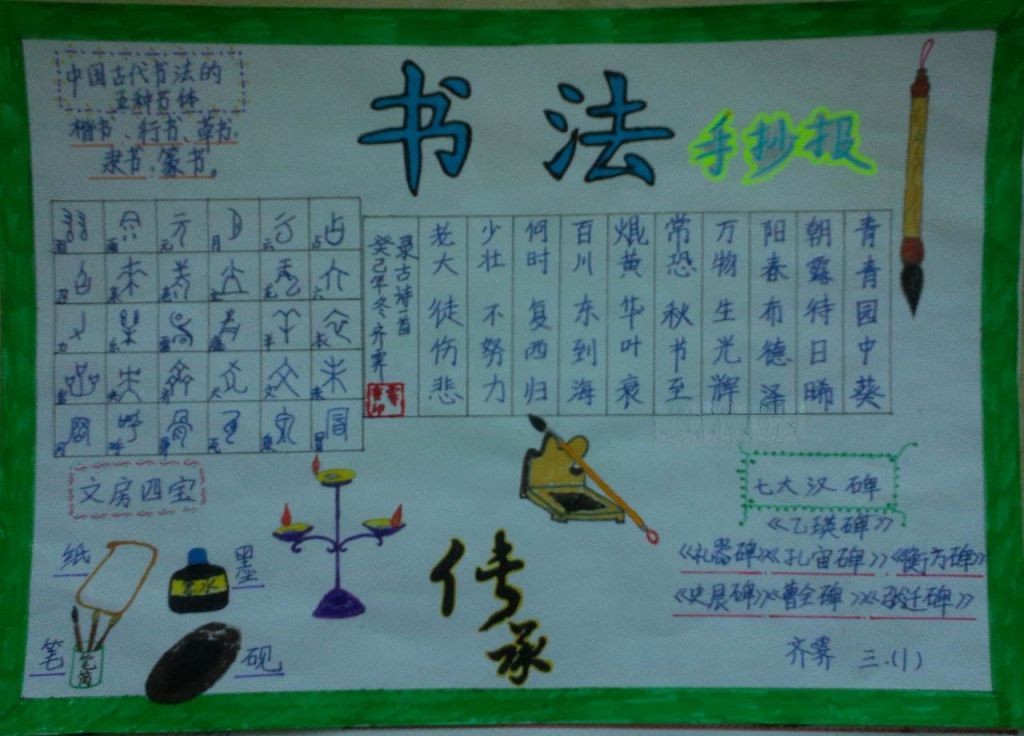 中国古代书法的
五种书体
楷书、行书、草书、
隶书、篆书。
书法
手抄报
元 月 云 占
六
力 羊 长
大 文 未
青青园中葵
朝露待日晞
阳春布德泽
万物生光辉
常恐秋节至
焜黄华叶衰
百川东到海
何时复西归
少壮不努力
老大徒伤悲
录古诗一首
癸巳年冬齐霁
文房四宝
纸
墨
墨水
笔
笔筒
砚
传承
七大汉碑
《乙瑛碑》
《礼器碑》《孔宙碑》《衡方碑》
《史晨碑》《曹全碑》《张迁碑》
齐霁 三.(1)